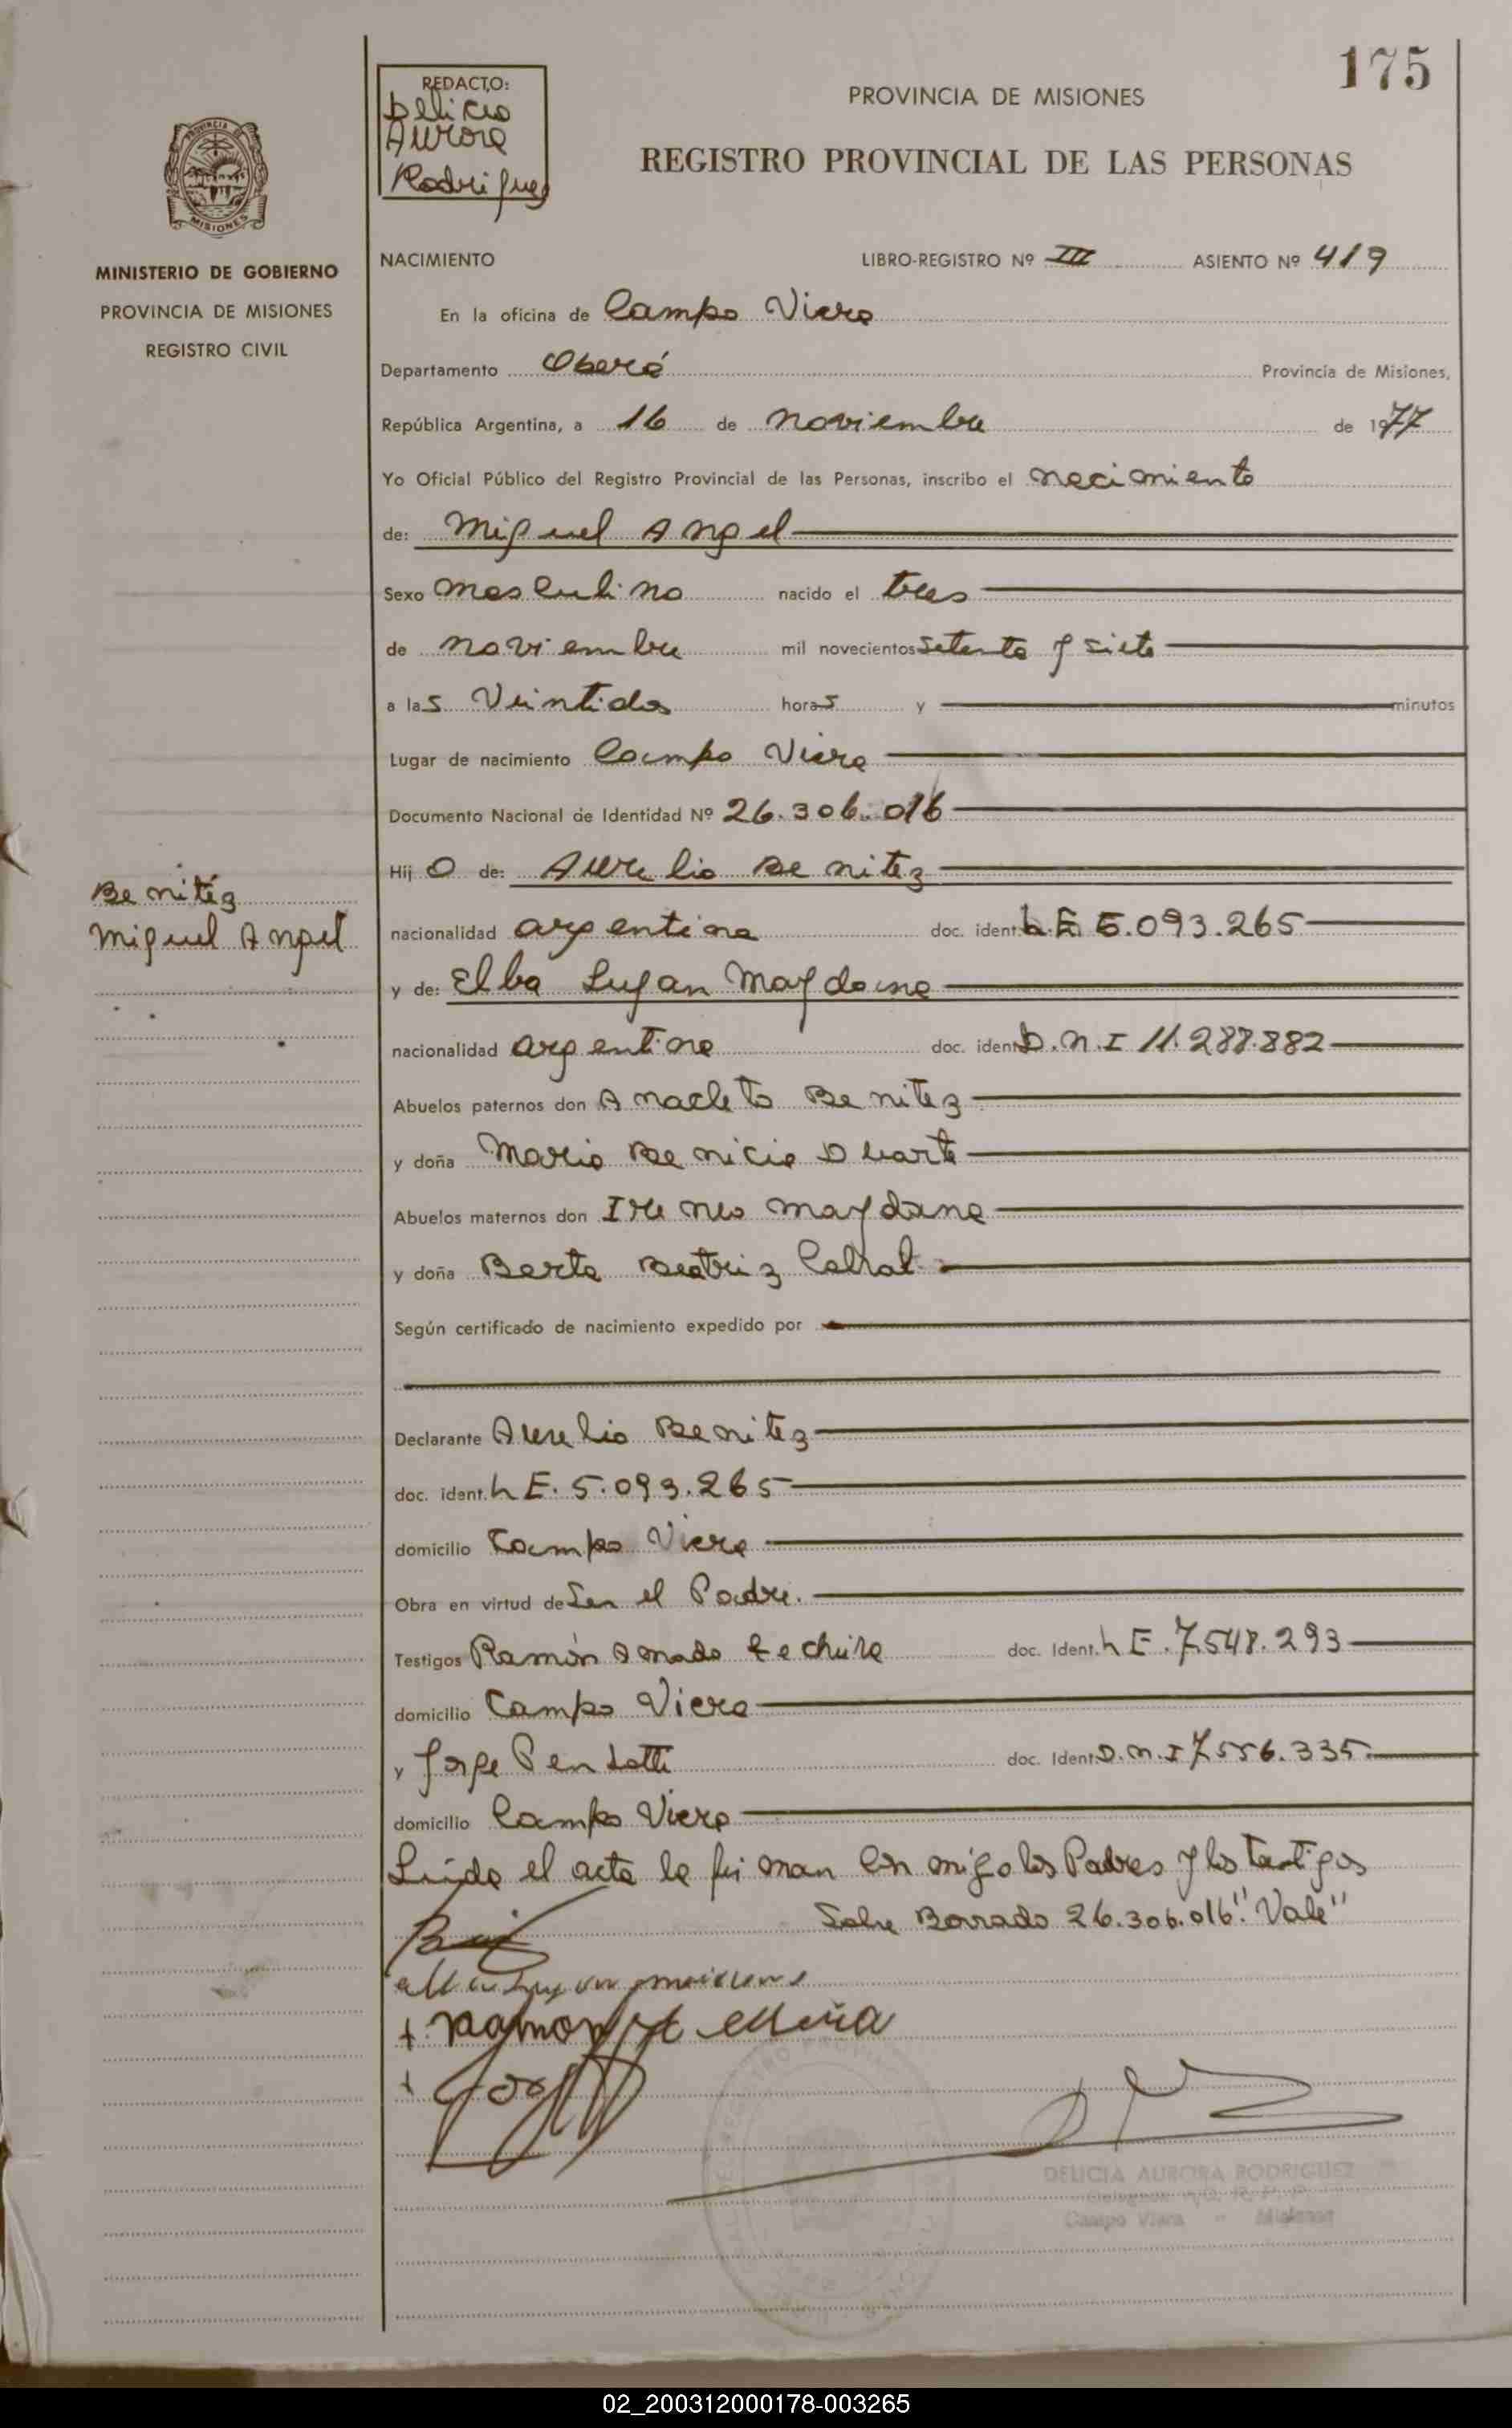 175
REDACTO:
Delicia
Aurora
Rodriguez
PROVINCIA DE MISIONES
REGISTRO PROVINCIAL DE LAS PERSONAS
MISIONES
MINISTERIO DE GOBIERNO
PROVINCIA DE MISIONES
REGISTRO CIVIL
NACIMIENTO LIBRO-REGISTRO Nº III ASIENTO Nº 419
En la oficina de Campo Viera
Departamento Oberá Provincia de Misiones,
República Argentina, a 16 de noviembre de 1977
Yo Oficial Público del Registro Provincial de las Personas, inscribo el nacimiento
de: Miguel Angel
Sexo masculino nacido el tres
de noviembre mil novecientos setenta y siete
a las Veintidos horas y minutos
Lugar de nacimiento Campo Viera
Documento Nacional de Identidad Nº 26.306.016
Hijo de: Aurelio Benitez
Benitéz
Miguel Angel
nacionalidad argentina doc. ident. L.E. 5.093.265
y de: Elba Lujan Maydana
nacionalidad argentina doc. ident. D.N.I 11.287.882
Abuelos paternos don Anacleto Benitez
y doña Maria Benicia Duarte
Abuelos maternos don Ireneo Maydana
y doña Berta Beatriz Cabral
Según certificado de nacimiento expedido por
Declarante Aurelio Benitez
doc. ident. L E. 5.093.265
domicilio Campo Viera
Obra en virtud de Ser el Padre.
Testigos Ramón Amado doc. Ident. L E. 7.548.293
domicilio Campo Viera
y Jorge Pendotti doc. Ident. D.N.I 7.556.335
domicilio Campo Viera
Leída el acta la firman conmigo los Padres y los testigos
Sobre Borrado 26.306.016 "Vale"
DELICIA AURORA RODRIGUEZ
Campo Viera - Misiones
02_200312000178-003265